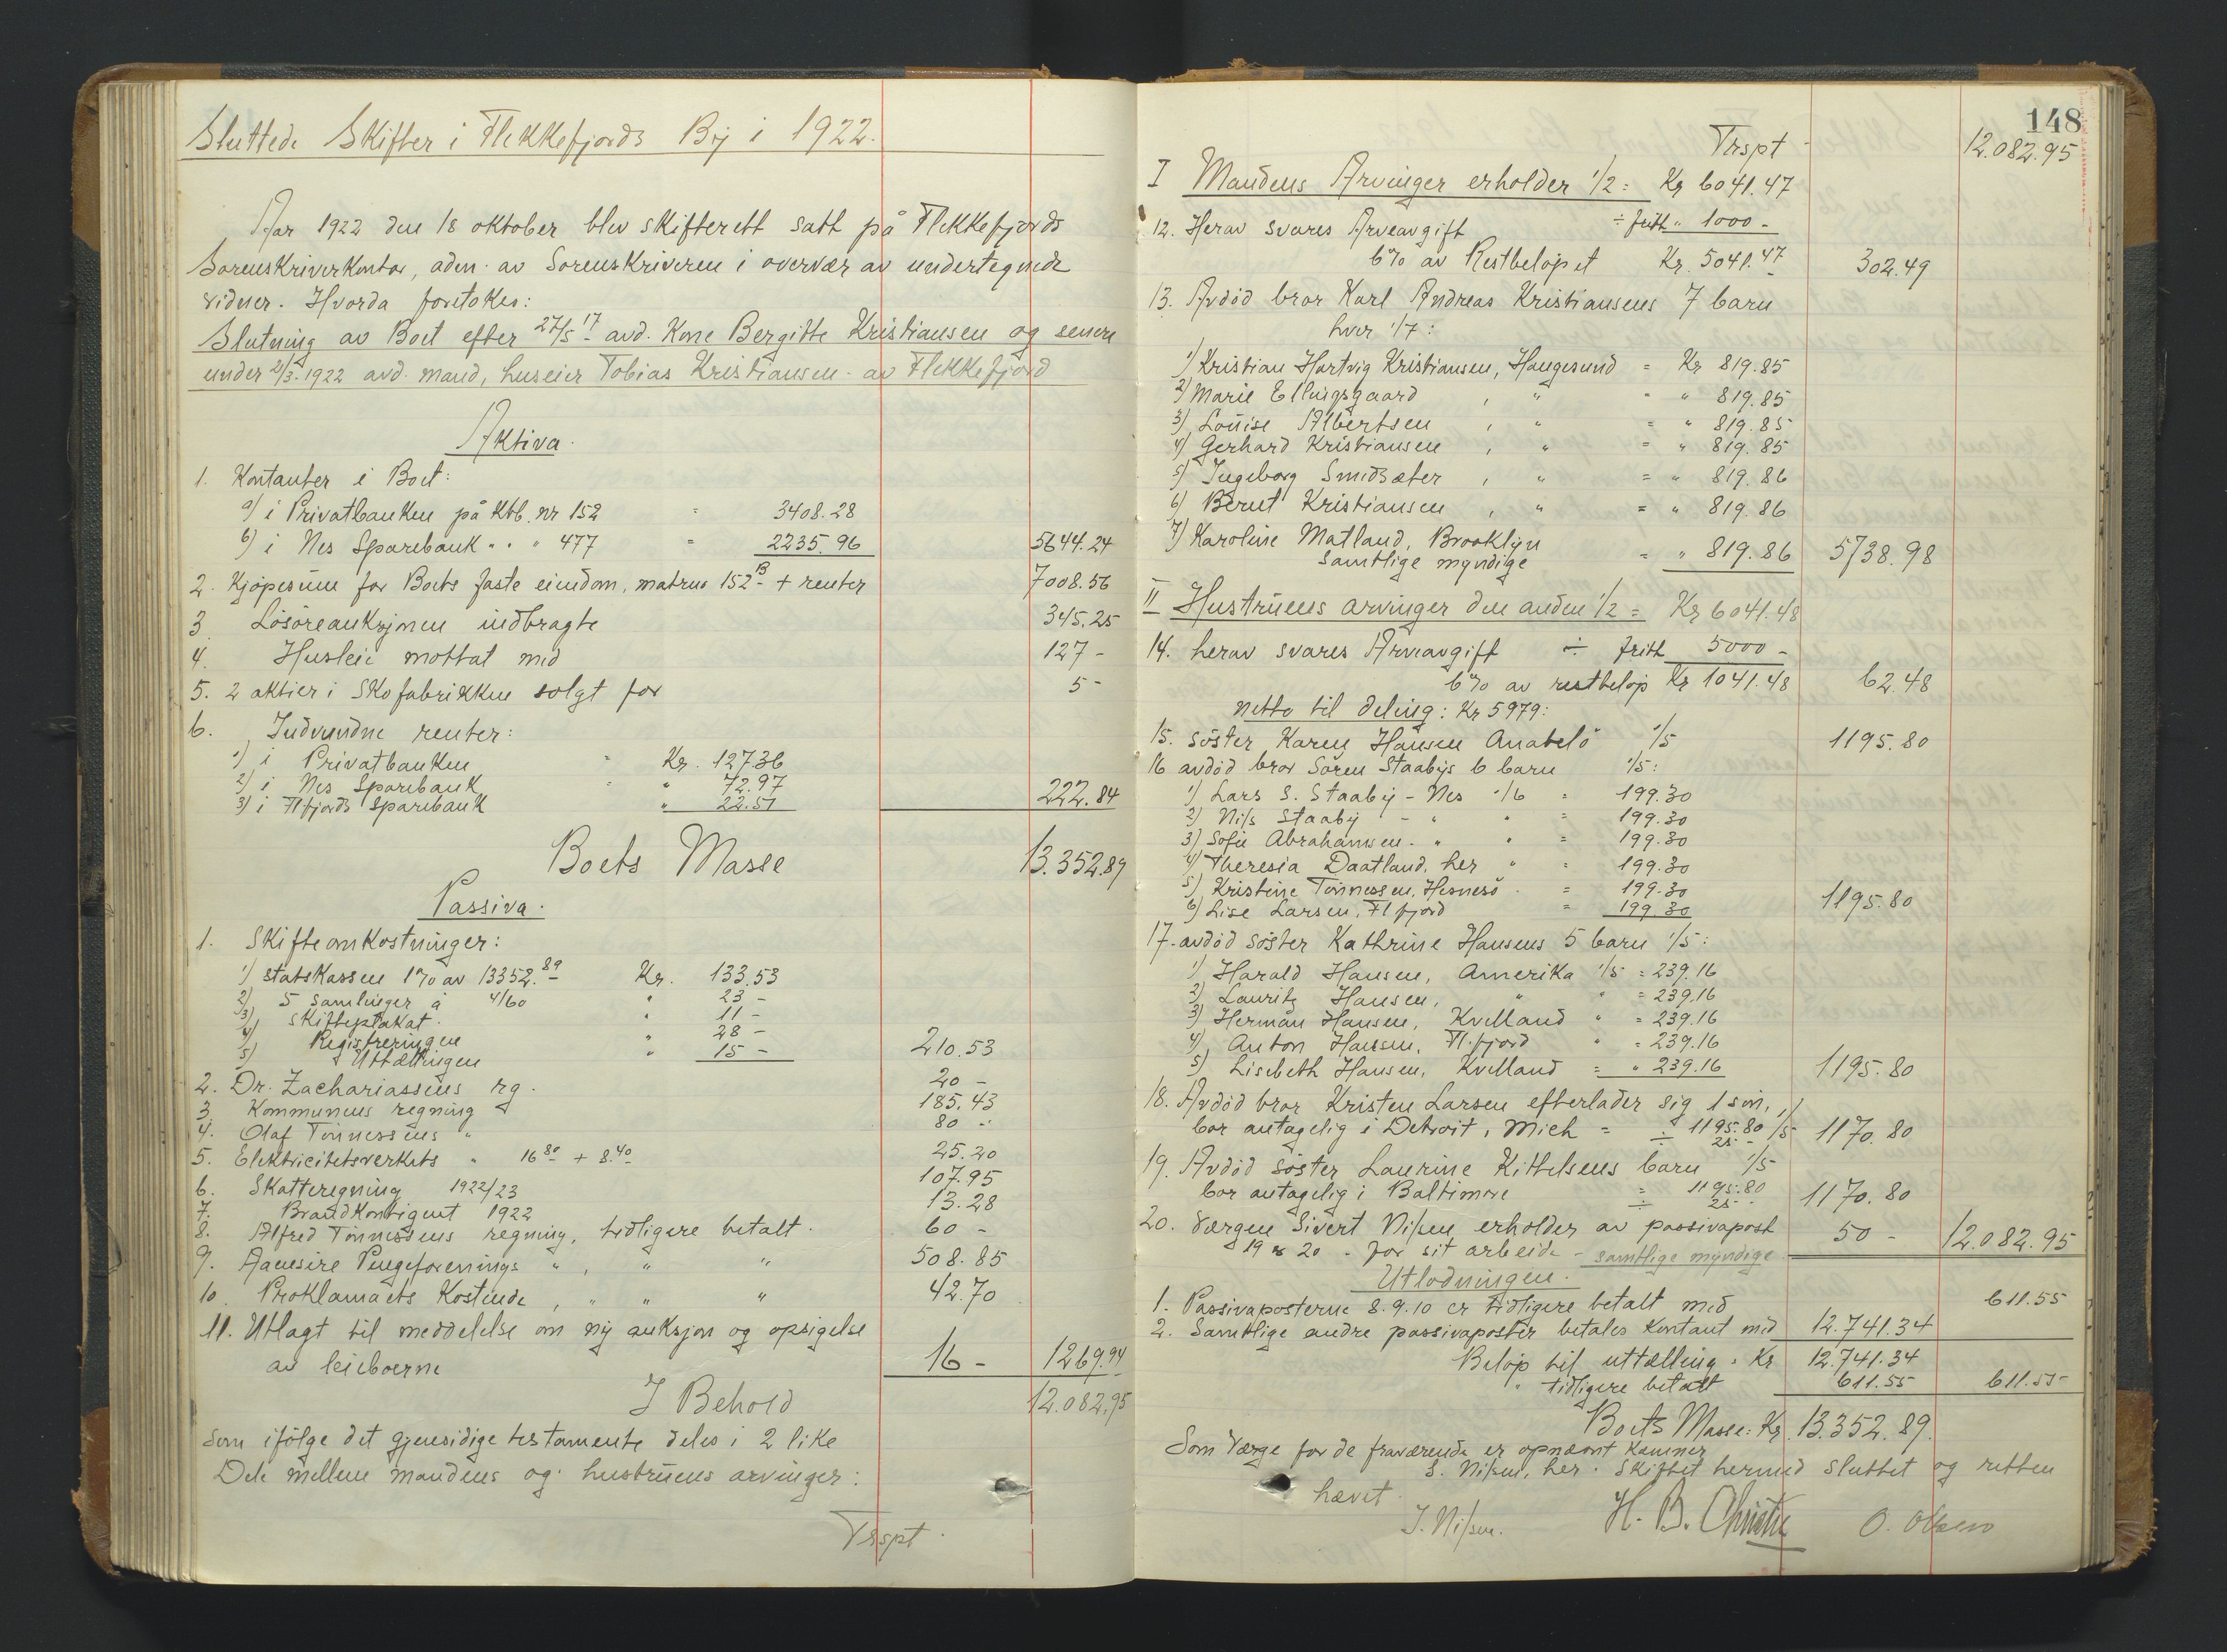 Sluttede Skifter i Flekkefjords By i 1922.
Aar 1922 den 18 oktober blev skifterett satt på Flekkefjords
Sorenskriverkontor, adm. av Sorenskriveren i overvær av undertegnede
vidner. Hvorda foretokes:
Slutning av Boet efter 27/5 17 avd. Kone Bergitte Kristiansen og senere
under 2/3 1922 avd. mand, huseier Tobias Kristiansen av Flekkefjord
Aktiva.
1. Kontanter i Boet:
a) i Privatbanken på Ktb. nr 152 = 3408.28
b) i Nes Sparebank " " " 477 = 2235.96 5644.24
2. Kjøpesum for Boets faste eiendom, matrno 152 B + renter 7008.56
3 Løsøreauksjonen indbragte 345.25
4. Husleie mottat med 127 -
5. 2 aktier i Skofabrikken solgt for 5 -
6. Indvundne renter:
1) i Privatbanken " Kr. 127.36
2) i Nes Sparebank " " 72.97
3) i Flfjords Sparebank " 22.51 222.84
Boets Masse 13.352.89
Passiva.
1. Skifteomkostninger:
1) statskassen 1% av 13352.89 Kr. 133.53
2) 5 samlinger à 4/60 " 23 -
3) Skifteplakat. " 11 -
4) Registreringen " 28 -
5) Uttællingen " 15 - 210.53
2. Dr. Zachariassens rg. 20 -
3. Kommunens regning 185.43
4. Olaf Tønnessens " 80 -
5. Elektricitetsverkets " 16 80 + 8.40 25.20
6. Skatteregning 1922/23 107.95
7. Brandkontigent 1922 13.28
8. Alfred Tønnessens regning, tidligere betalt. 60 -
9. Aanesire Pengeforenings " , " " 508.85
10. Proklamaets Kostende , " " " 42.70
11. Utlagt til meddelelse om ny auksjon og opsigelse
av leieboerne 16 - 1269.94
I Behold 12.082.95
som ifølge det gjensidige testamente deles i 2 like
Dele mellem mandens og hustruens arvinger:
Trspt.
148
Trspt 12.082.95
I Mandens Arvinger erholder 1/2 = Kr 6041.47
12. Herav svares Arveavgift ÷ fritt " 1000 -
6% av Restbeløpet Kr. 5041.47 302.49
13. Avdød bror Karl Andreas Kristiansens 7 barn
hver 1/7:
1) Kristian Hartvig Kristiansen, Haugesund = Kr 819.85
2) Marie Ellingsgaard , " " " 819.85
3) Louise Albertsen , " = " 819.85
4) Gerhard Kristiansen , " = " 819.85
5) Ingeborg Smidsæter , " = " 819.86
6) Bernt Kristiansen , " = " 819.86
7) Karoline Matland, Brooklyn = " 819.86 5738.98
samtlige myndige
II Hustruens arvinger den anden 1/2 = Kr 6041.48
14. herav svares Arveavgift ÷ fritt 5000 -
6% av restbeløp Kr 1041.48 62.48
netto til deling: Kr 5979:
15. søster Karen Hansen Anabelø 1/5 1195.80
16 avdød bror Søren Staabys 6 barn 1/5:
1) Lars S. Staaby - Nes 1/6 = 199.30
2) Nils Staaby - " " = 199.30
3) Sofie Abrahamsen - " " = 199.30
4) Theresia Daatland, her " = 199.30
5) Kristine Tønnessen, Hesnesø . = 199.30
6) Lise Larsen, Flfjord = 199.30 1195.80
17. avdød søster Kathrine Hansens 5 barn 1/5:
1) Harald Hansen, Amerika 1/5 = 239.16
2) Lauritz Hansen, " " = 239.16
3) Herman Hansen, Kvelland " = 239.16
4) Anton Hansen, Fl.fjord " = 239.16
5) Lisebeth Hansen, Kvelland = " 239.16 1195.80
18. Avdød bror Kristen Larsen efterlader sig 1 søn,
bor antagelig i Detroit, Mich = 1195.80 1/5 ÷ 25 - 1170.80
19. Avdød søster Laurine Kittelsens barn 1/5
bor antagelig i Baltimore = 1195.80 ÷ 25 - 1170.80
20. Værgen Sivert Nilsen erholder av passivapost
19 & 20 - for sit arbeide - samtlige myndige 50 - 12.082.95
Utlodningen.
1. Passivaposterne 8.9.10 er tidligere betalt med 611.55
2. Samtlige andre passivaposter betales kontant med 12.741.34
Beløp til uttælling: Kr 12.741.34
" tidligere betalt 611.55 611.55
Boets Masse: Kr. 13.352.89.
Som Værge for de fraværende er opnævnt Kæmner
S. Nilsen, her. Skiftet hermed sluttet og retten
hævet.
J. Nilsen. H. B. Christie O. Olsen